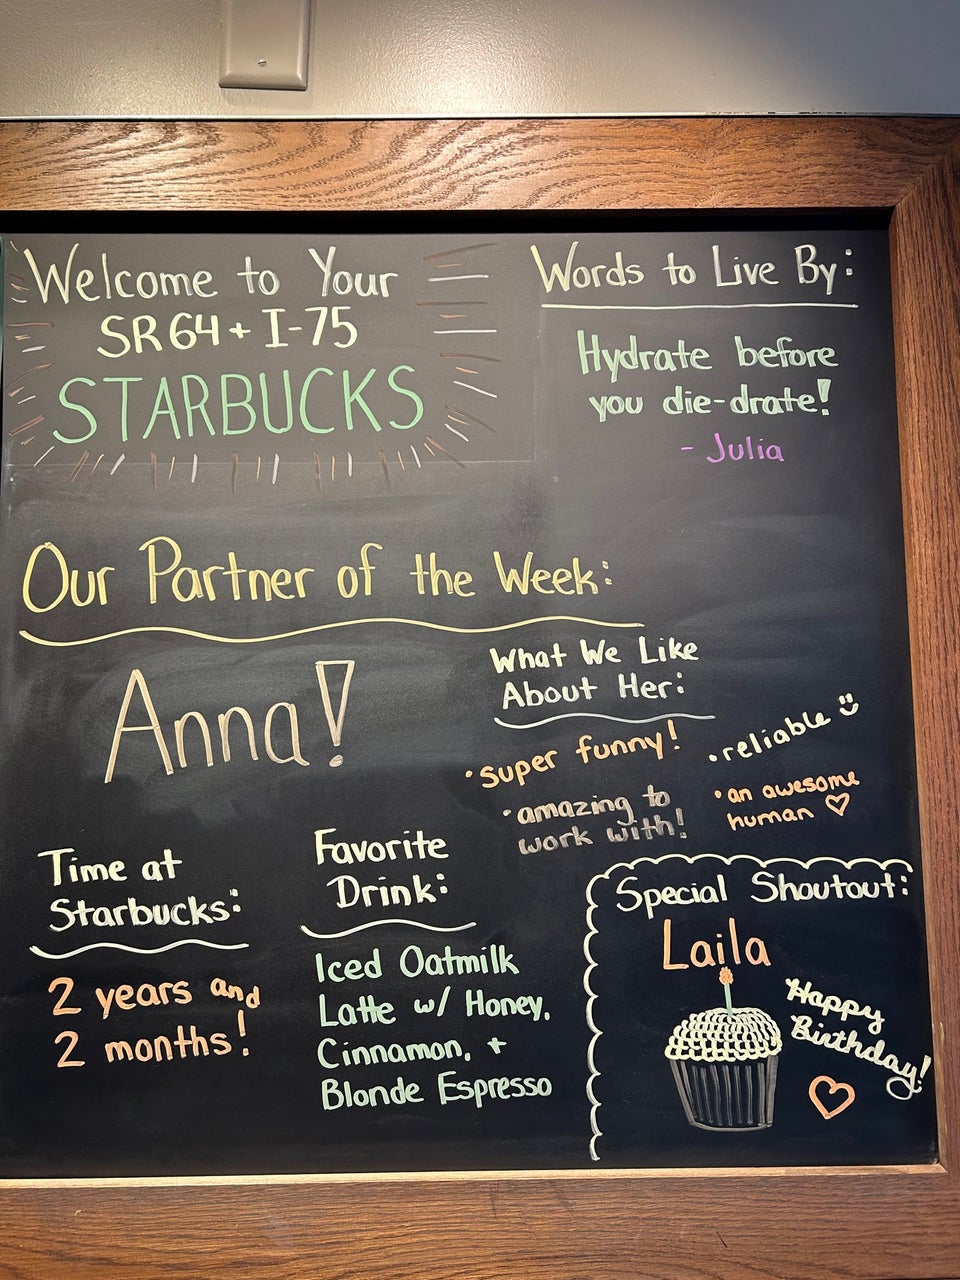 Welcome to Your
SR64 + I-75
STARBUCKS
Words to Live By:
Hydrate before
you die-drate!
- Julia
Our Partner of the Week:
Anna!
What We Like
About Her:
• super funny!
• reliable
• amazing to
work with!
• an awesome
human ♡
Time at
Starbucks:
2 years and
2 months!
Favorite
Drink:
Iced Oatmilk
Latte w/ Honey,
Cinnamon, +
Blonde Espresso
Special Shoutout:
Laila
Happy
Birthday!